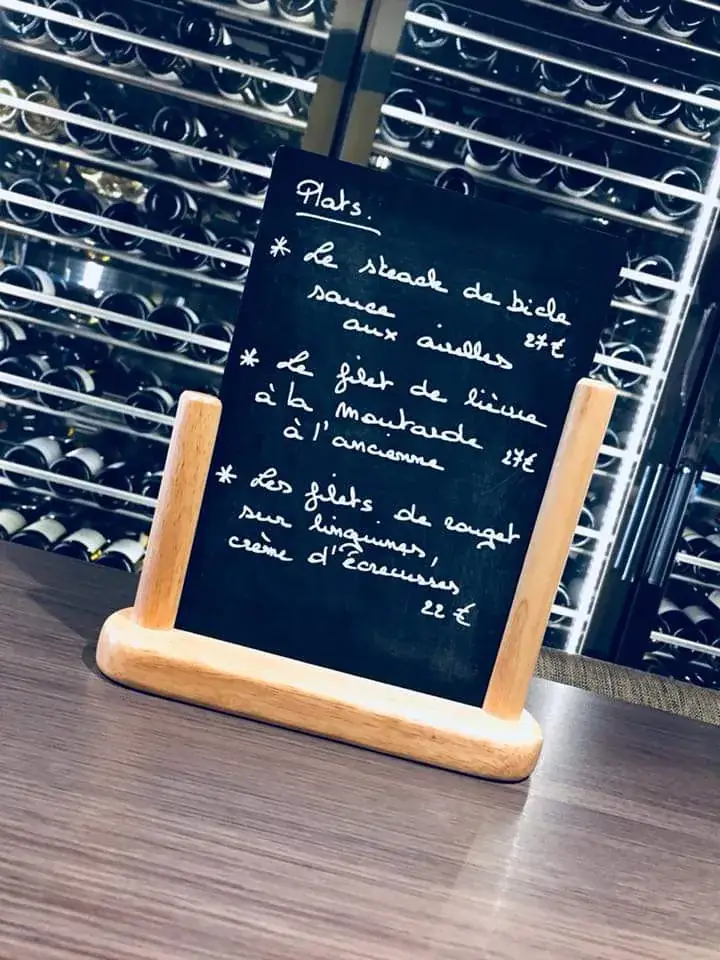 Plats.
* Le steack de biche
sauce 27€
aux airelles
* Le filet de lièvre
à la moutarde 27€
à l'ancienne
* Les filets de rouget
sur linguines,
crème d'Écrevisses
22 €